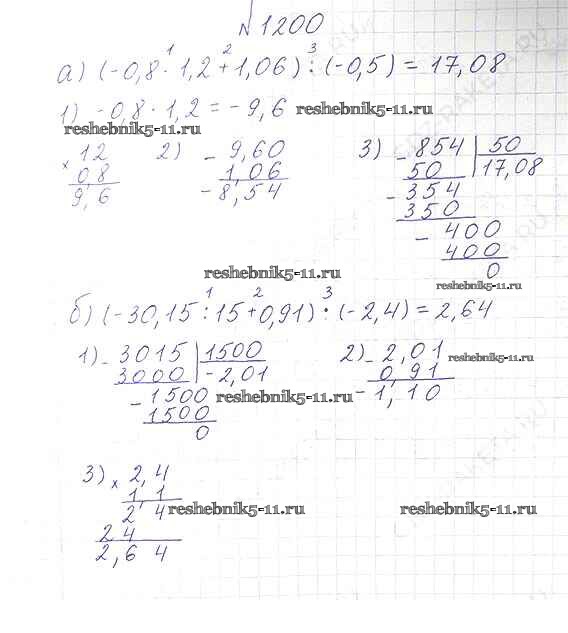 №1200
1 2 3
а) (-0,8 · 1,2 + 1,06) : (-0,5) = 17,08
1) -0,8 · 1,2 = -9,6
reshebnik5-11.ru
reshebnik5-11.ru
× 12
0,8
9,6
2) - 9,60
1,06
- 8,54
3) - 854 | 50
50 | 17,08
- 354
350
- 400
400
0
reshebnik5-11.ru
reshebnik5-11.ru
1 2 3
б) (-30,15 : 15 + 0,91) · (-2,4) = 2,64
1) - 3015 | 1500
3000 | -2,01
- 1500
1500
0
reshebnik5-11.ru
2) - 2,01
0,91
- 1,10
reshebnik5-11.ru
3) × 2,4
1,1
2 4
24
2,64
reshebnik5-11.ru
reshebnik5-11.ru